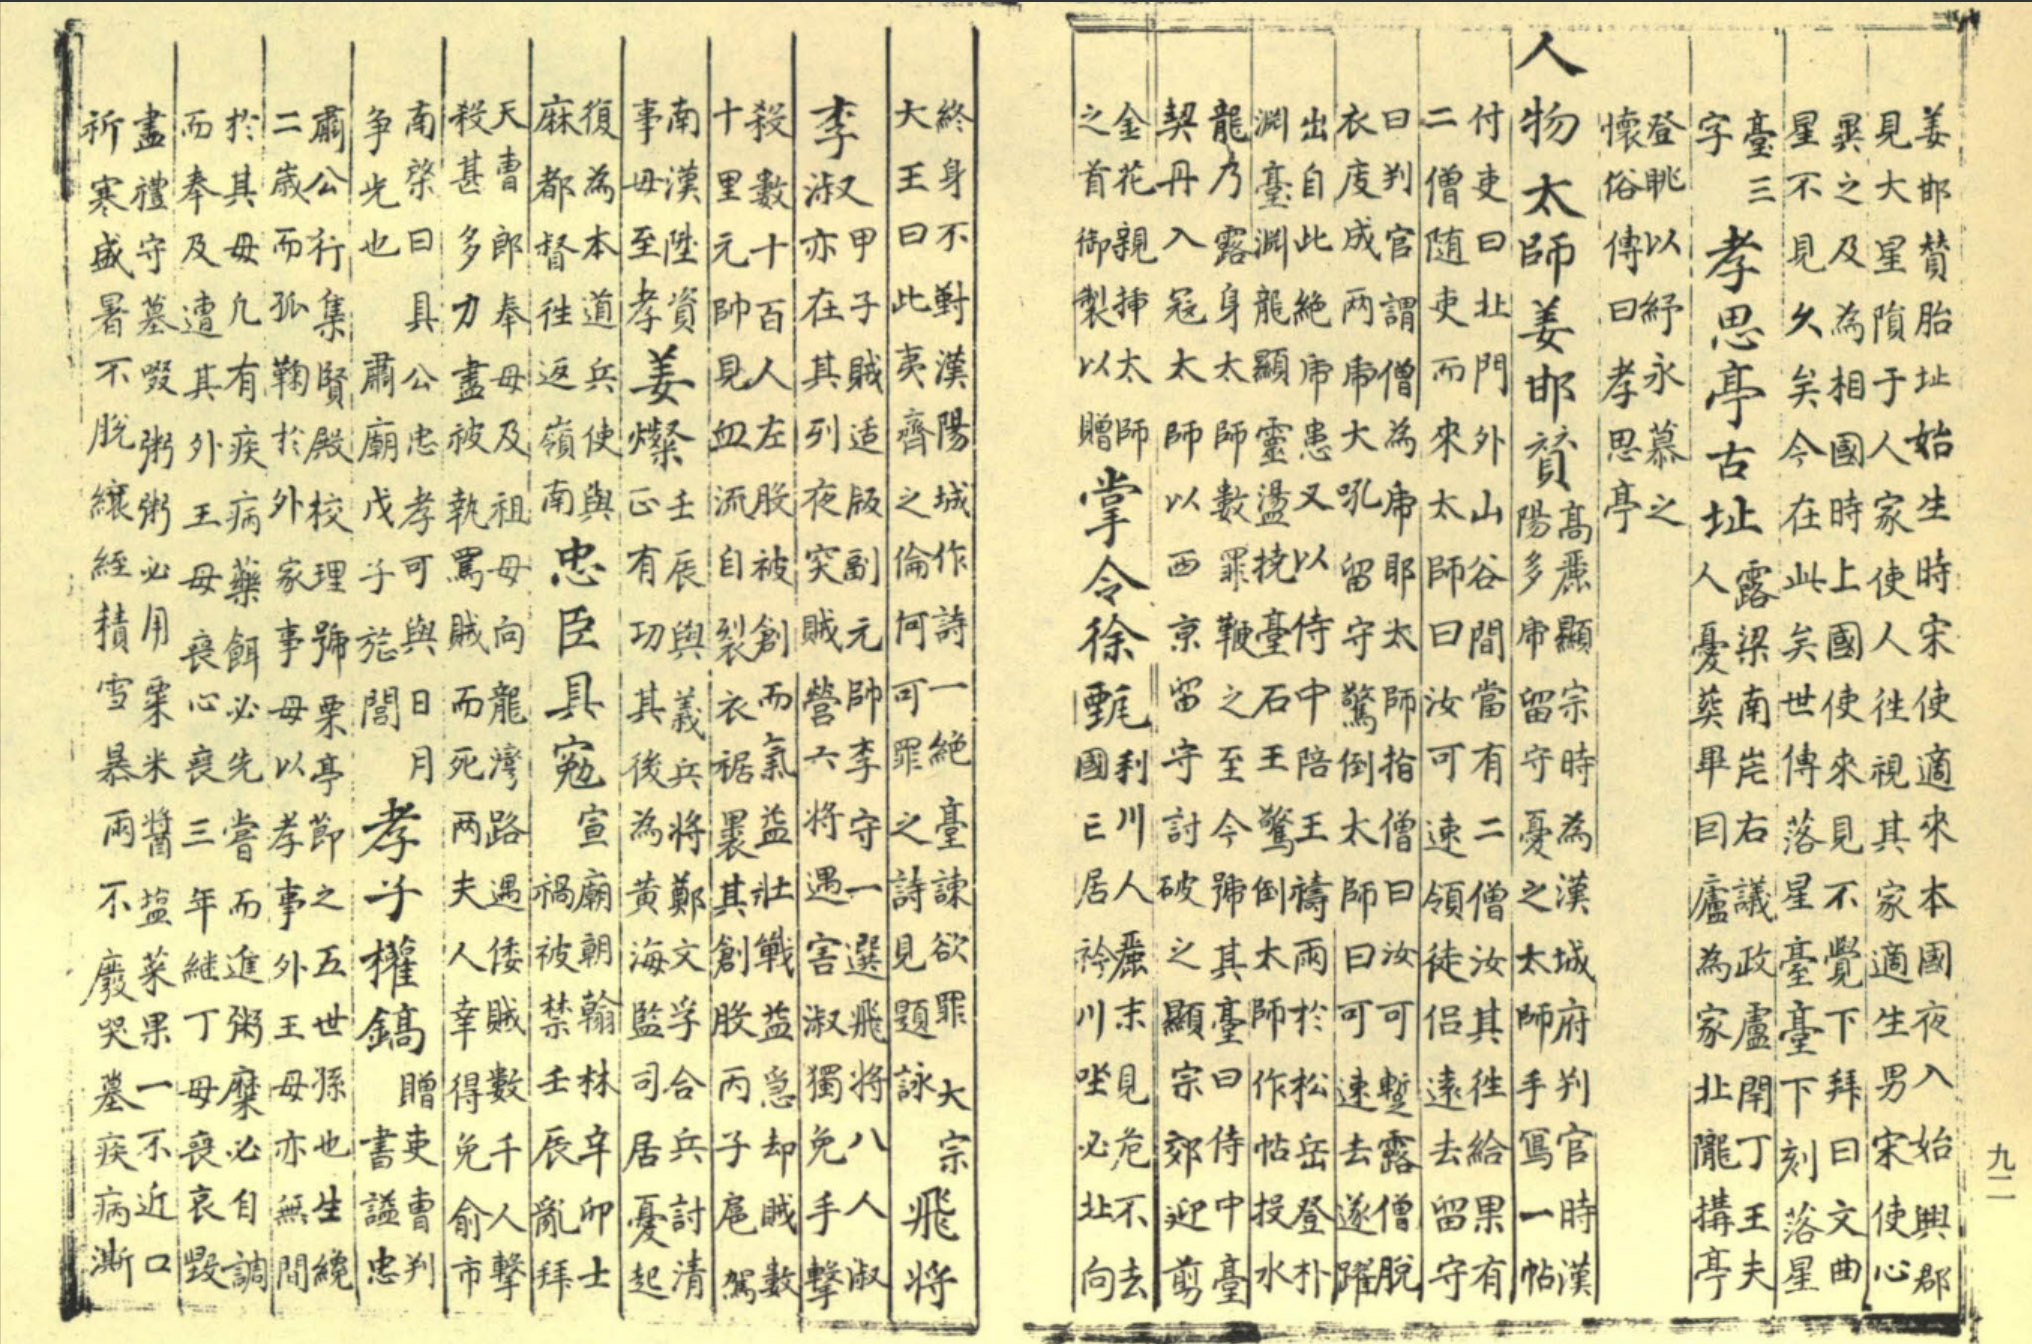 姜邯賛胎址始生時宋使適來本國夜入始興郡
見大星隕于人家使人徃視其家適生男宋使心
異之及為相國時上國使來見不覺下拜曰文曲
星不見久矣今在此矣世傳落星臺臺下刻落星
臺三
字
孝思亭古址
露梁南岸右議政盧閈丁王夫
人憂葬畢曰廬為家北隴搆亭
登眺以紓永慕之
懷俗傳曰孝思亭
人物太師姜邯賛
高麗顯宗時為漢城府判官時漢
陽多乕留守憂之太師手寫一帖
付吏曰北門外山谷間當有二僧汝其徃給果有
二僧随吏而來太師曰汝可速領徒侣遠去留守
曰判官謂僧為乕耶太師指僧曰汝可蹔露僧脫
衣庋成两乕大吼留守驚倒太師曰可速去遂躍
出自此絶乕患又以侍中陪王禱雨於松岳登朴
渊臺渊龍顯靈盪撓臺石王驚倒太師作帖投水
龍乃露身太師數罪鞭之至今號其臺曰侍中臺
契丹入冦太師以西亰留守討破之顯宗郊迎剪
金花親揷太師
之首御製以贈
掌令徐甄
利川人麗末見危不去
國亡居衿川坐必北向
終身不對漢陽城作詩一絶臺諫欲罪大宗
大王曰此夷齊之倫何可罪之詩見題詠
飛將
李
又甲子賊适版副元帥李守一選飛將八人淑
淑亦在其列夜突賊營六將遇害淑獨免手擊
殺數十百人左股被創而氣益壯戰益急却賊數
十里元帥見血流自裂衣裾裹其創股丙子扈駕
南漢陞資
事母至孝
姜燦
壬辰與義兵將鄭文孚合兵討清
正有功其後為黄海監司居憂起
復為本道兵使與
麻都督徃返嶺南
忠臣具寃
宣廟朝翰林辛卯士
禍被禁壬辰亂拜
天曹郎奉母及祖母向龍灣路遇倭賊數千人擊
殺甚多力盡被執罵賊而死两夫人幸得免俞市
南棨曰具公忠孝可與日月
争光也 肅廟戊子㫌閭
孝子權鎬
贈吏曹判
書謚忠
肅公行集賢殿校理號栗亭節之五世孫也生纔
二歳而孤鞠於外家事母以孝事外王母亦無間
於其母凢有疾病藥餌必先嘗而進粥糜必自調
而奉及遭其外王母喪心喪三年継丁母喪哀毁
盡禮守墓啜粥粥必用粟米醬盐菜果一不近口
祈寒盛暑不脫縗絰積雪暴雨不廢哭墓疾病澌
九二